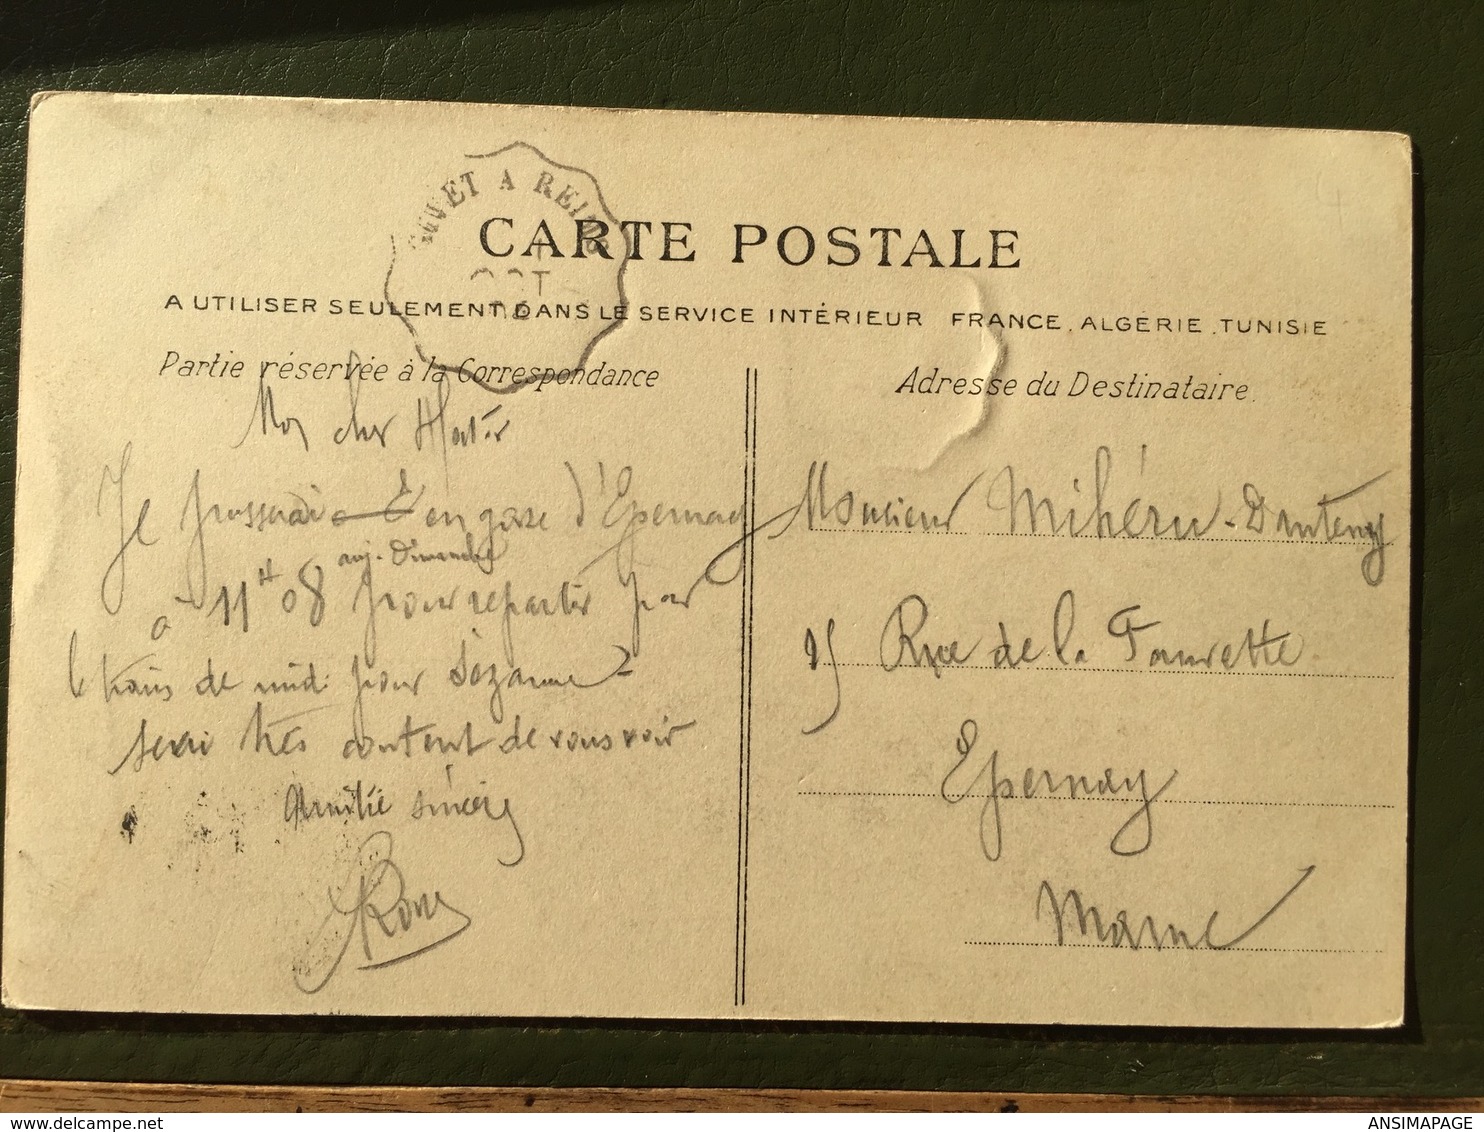 A REIMS
OCT
CARTE POSTALE
A UTILISER SEULEMENT DANS LE SERVICE INTÉRIEUR FRANCE, ALGERIE, TUNISIE
Partie réservée à la Correspondance
Mon cher
Je passerai en gare d'Epernay
à 11H 08 auj. Dimanche pour repartir par
le train de midi pour Sézanne
serai très content de vous voir
Amitié sincère
Adresse du Destinataire.
Monsieur Mihéru-Dauteny
Rue de la Fauvette
Epernay
Marne
ANSIMAPAGE